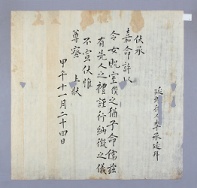 伏承
嘉命許以
令女貺室僕之猶子命儒玆
有先人之禮謹行納徵之儀
不宣伏惟
尊察 上狀
甲午十一月二十四日